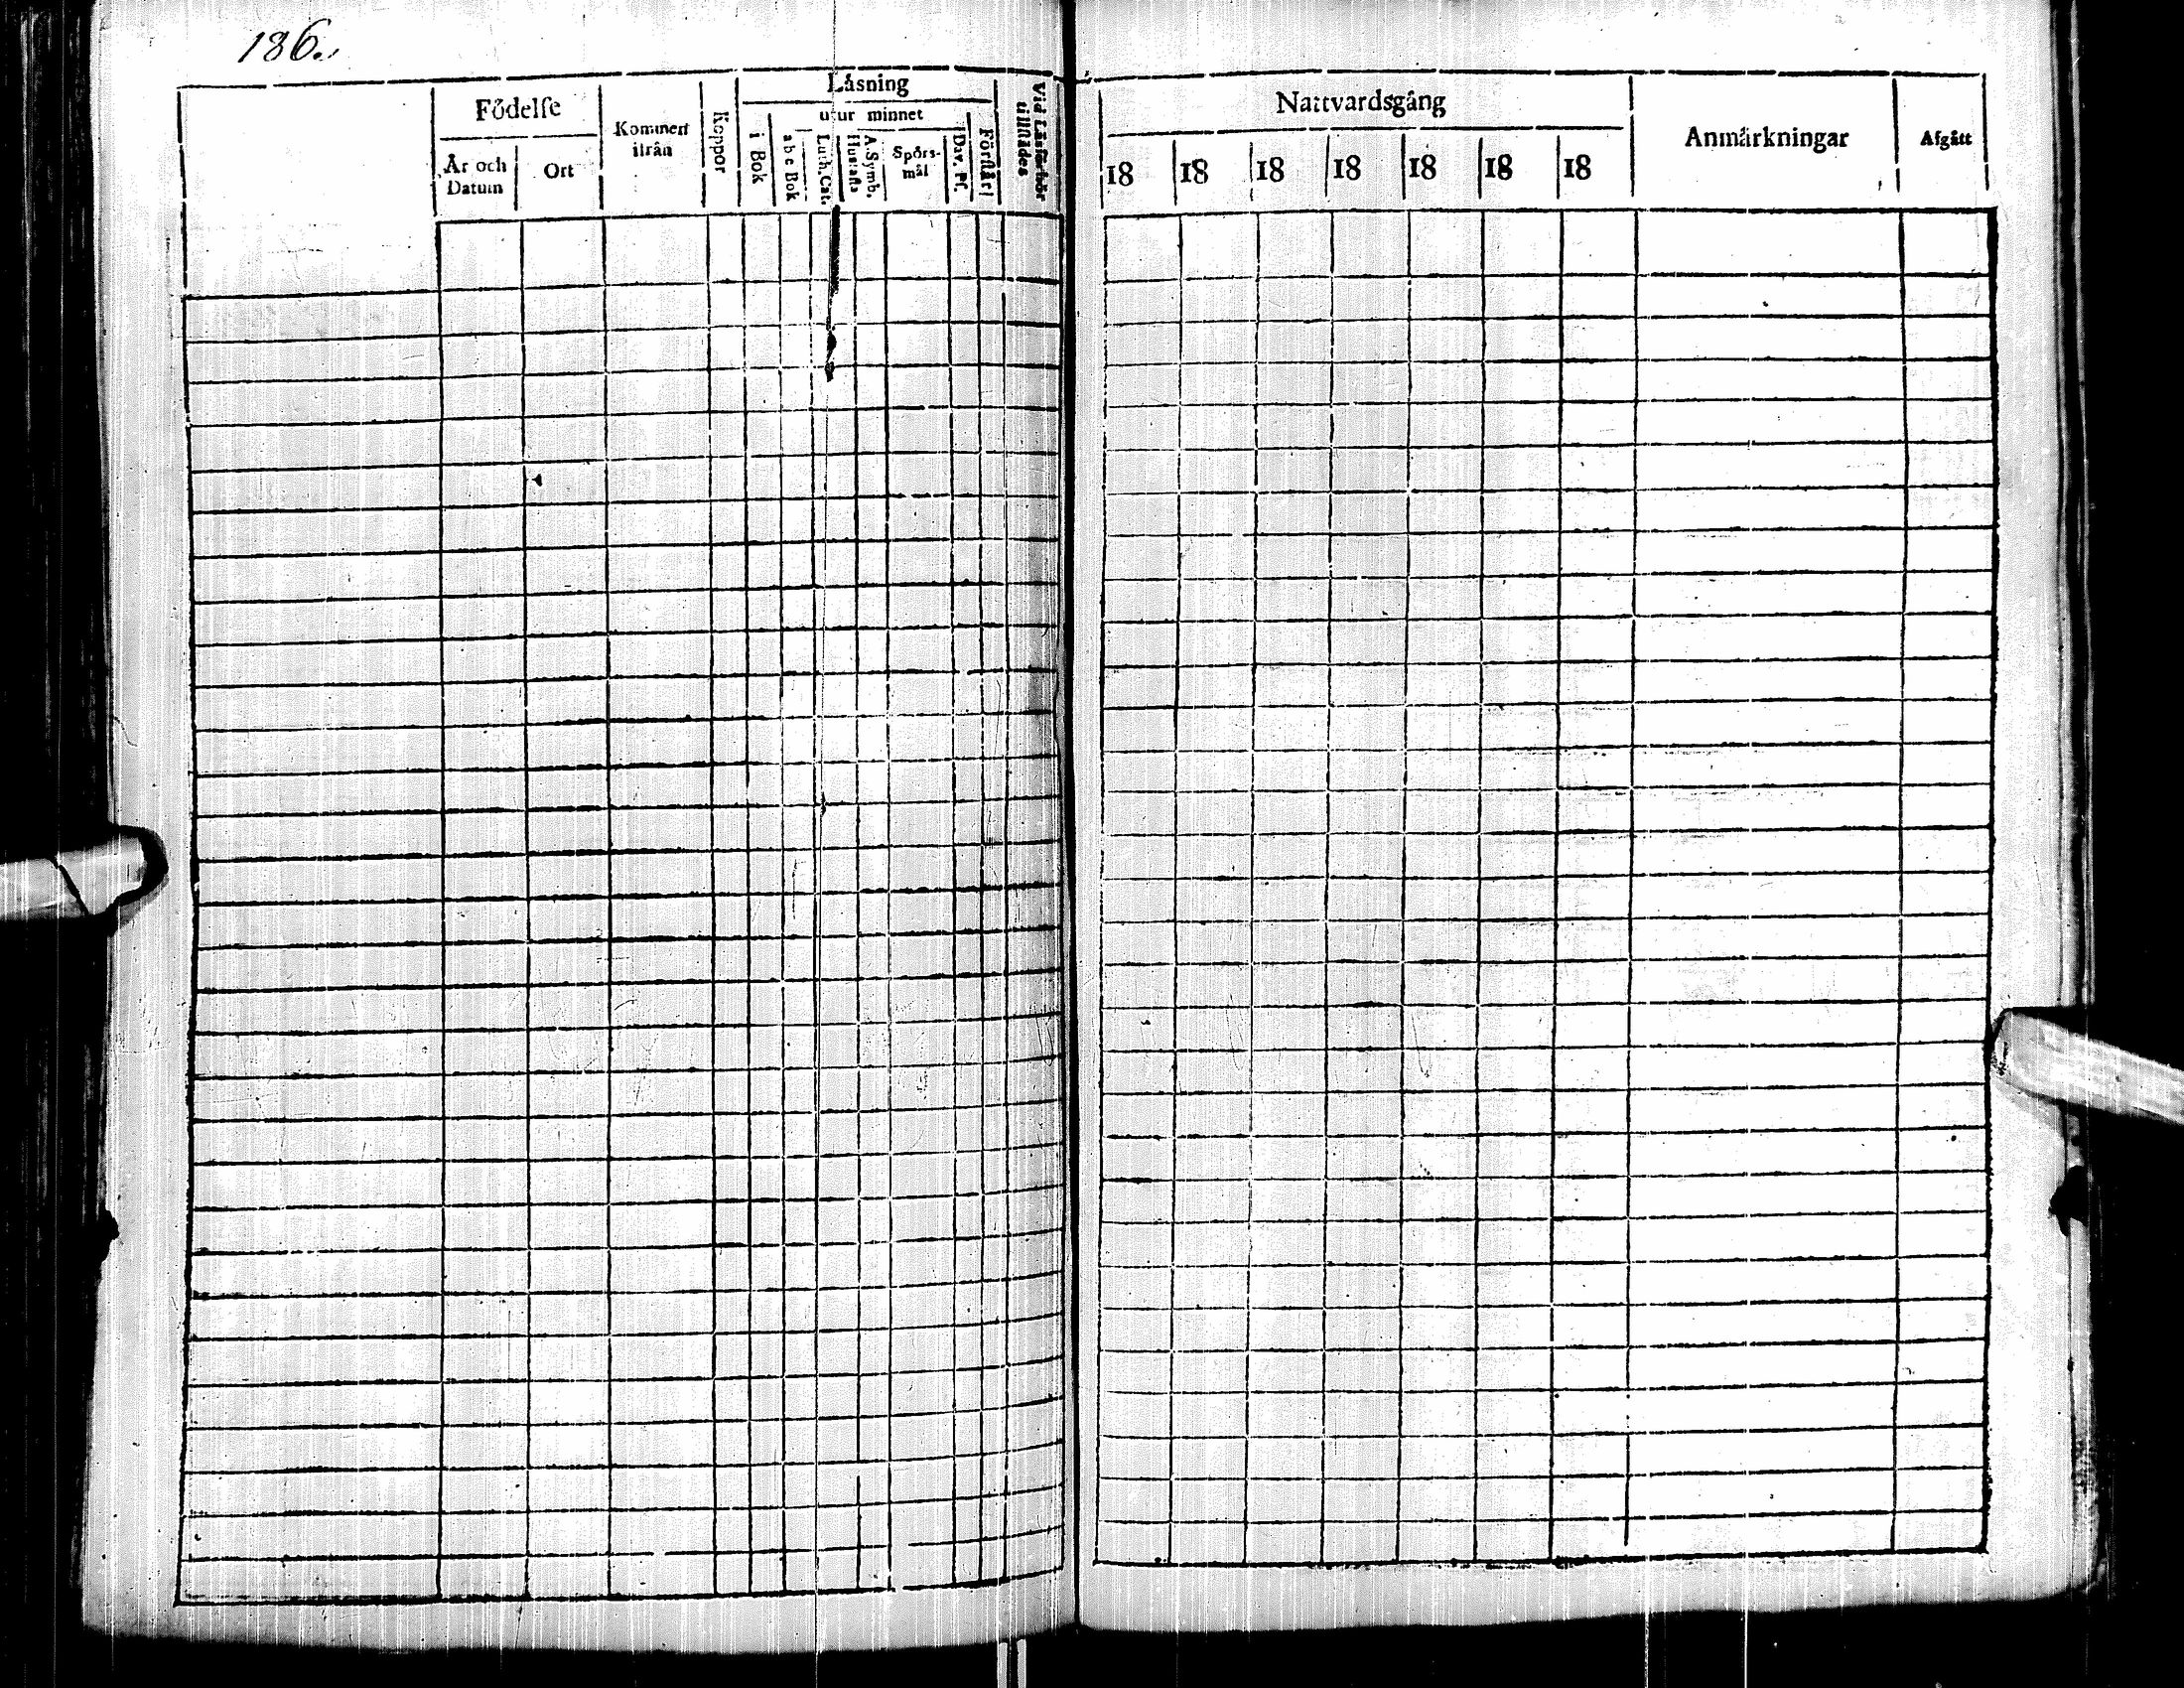 186.
Födelse
År och Datum
Ort
Kommen ifrån
Koppor
Läsning
utur minnet
i Bok
abc Bok
Luth. Cat.
A. Symb.
Hustafla
Spörs-
mål
Dav. Ps.
Förstår
Vid Läsförhör
tillstädes
Nattvardsgång
18 18 18 18 18 18 18
Anmärkningar
Afgått